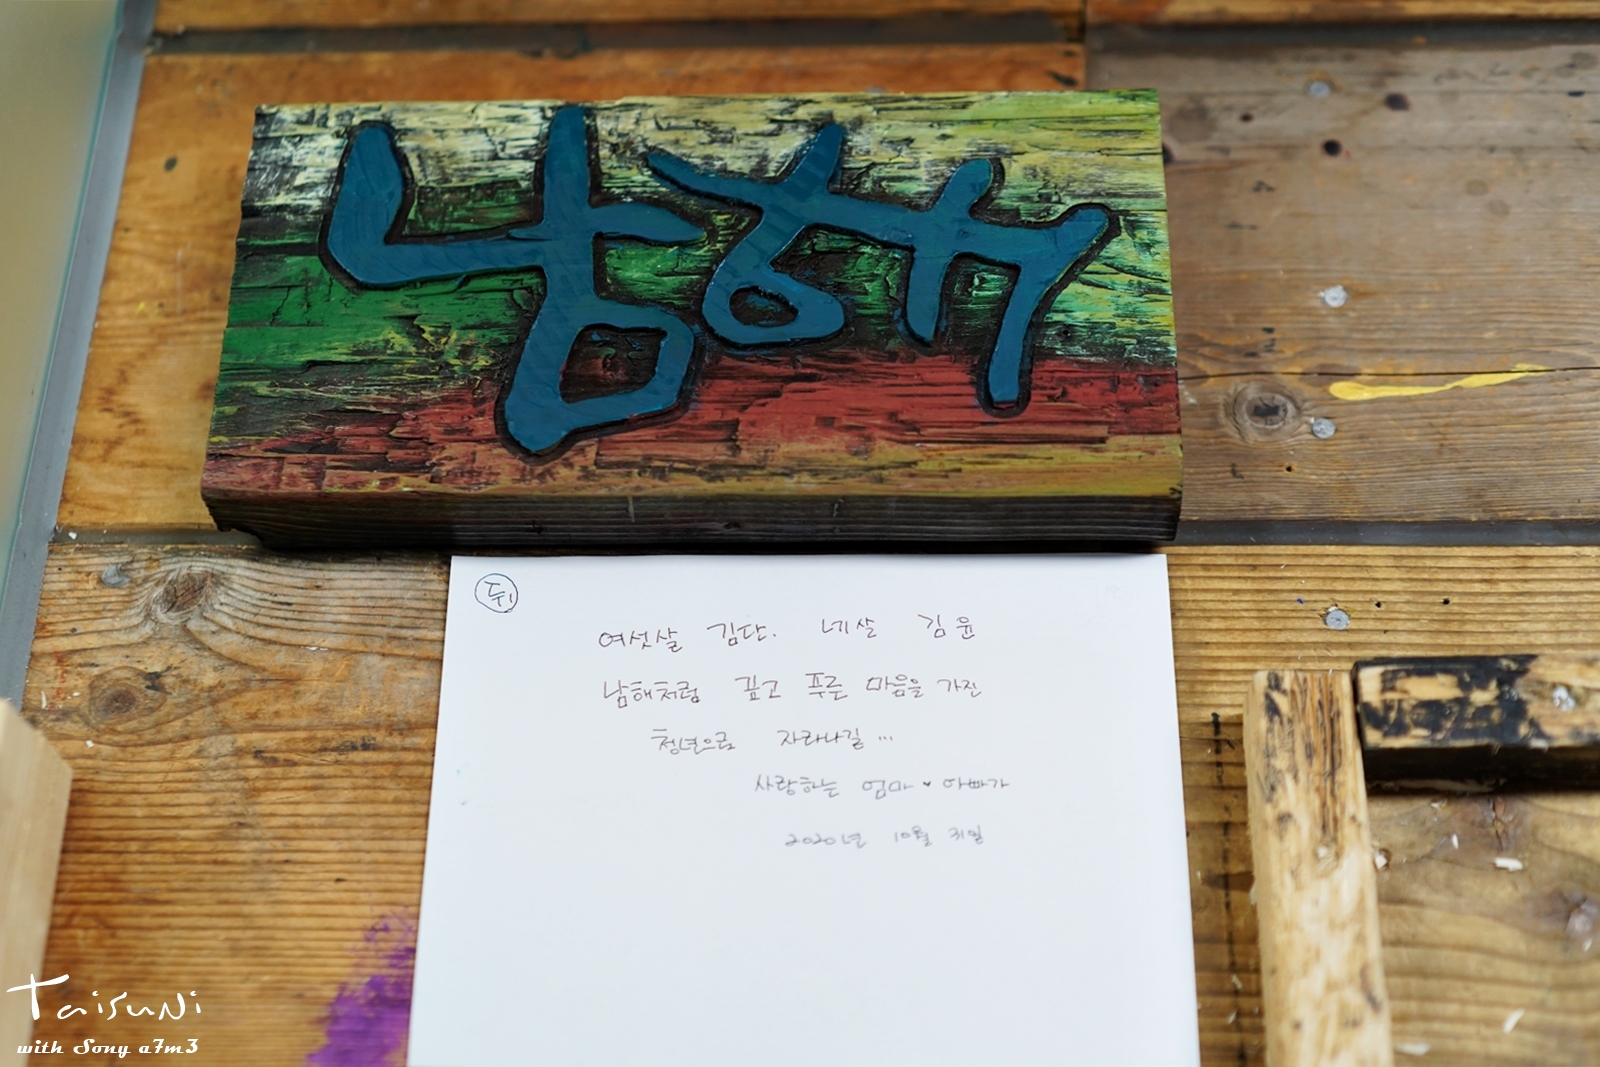 남해
뒤
여섯살 김단. 네살 김윤
남해처럼 깊고 푸른 마음을 가진
청년으로 자라나길 ...
사랑하는 엄마♥아빠가
2020년 10월 31일
Taisuni
with Sony a7m3